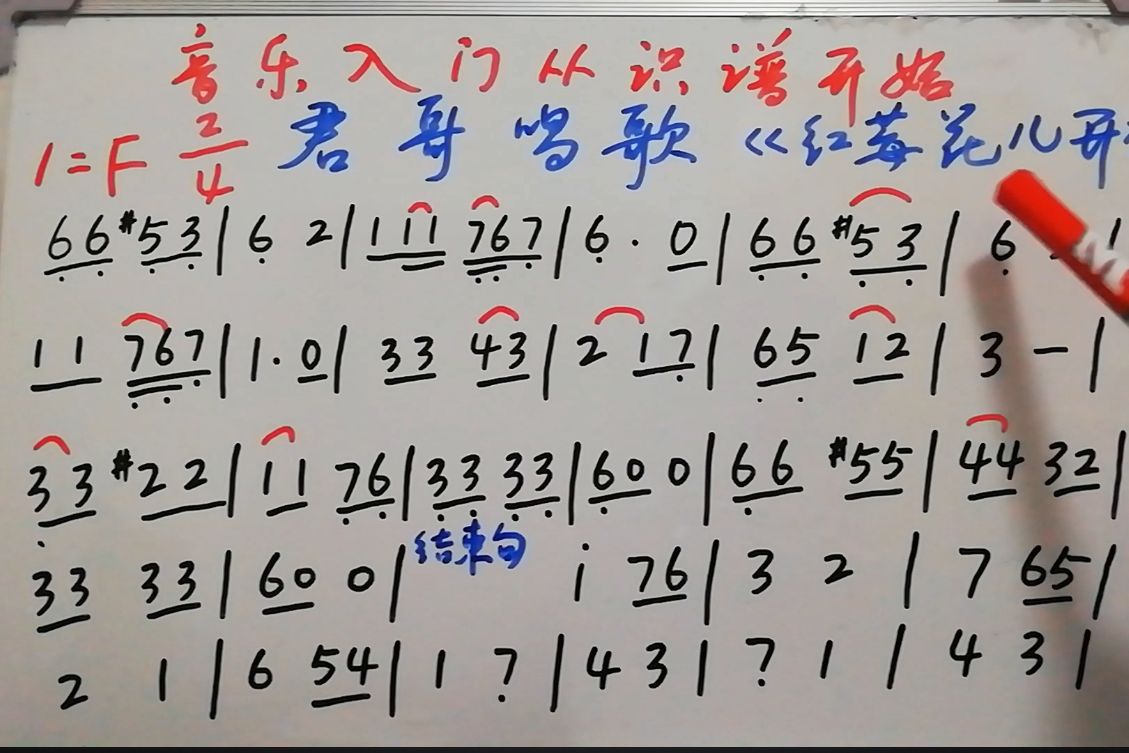 音乐入门从识谱开始
1=F 2/4 君哥唱歌《红莓花儿开
66 #53 | 6 2 | 111 767 | 6· 0 | 66 #53 | 6
11 767 | 1· 0 | 33 43 | 2 17 | 65 12 | 3 — |
33 #22 | 11 76 | 33 33 | 60 0 | 66 #55 | 44 32 |
33 33 | 60 0 | 结束句 i 76 | 3 2 | 7 65 |
2 1 | 6 54 | 1 ? | 4 3 | ? 1 | 4 3 |